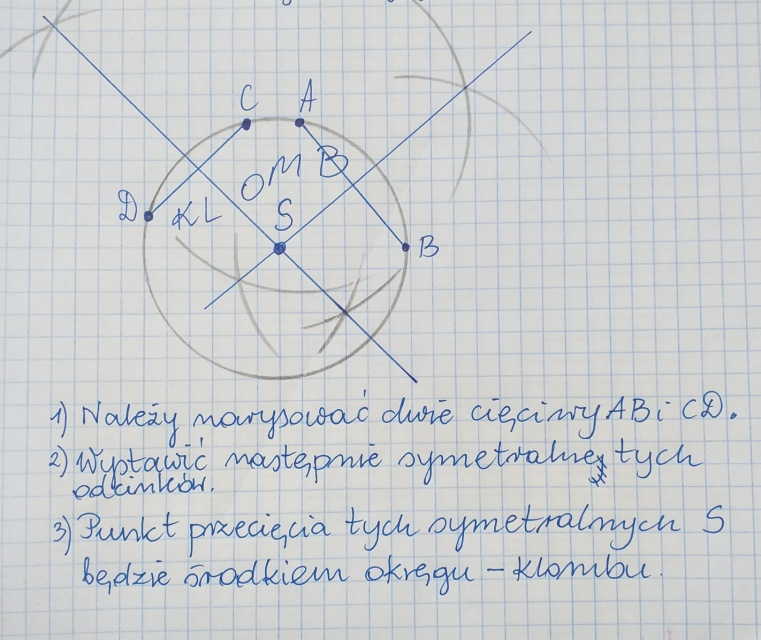 C A
OM B
D KL S B
1) Należy narysować dwie cięciwy AB i CD.
2) Wystawić następnie symetralne tych
odcinków.
3) Punkt przecięcia tych symetralnych S
będzie środkiem okręgu - klombu.